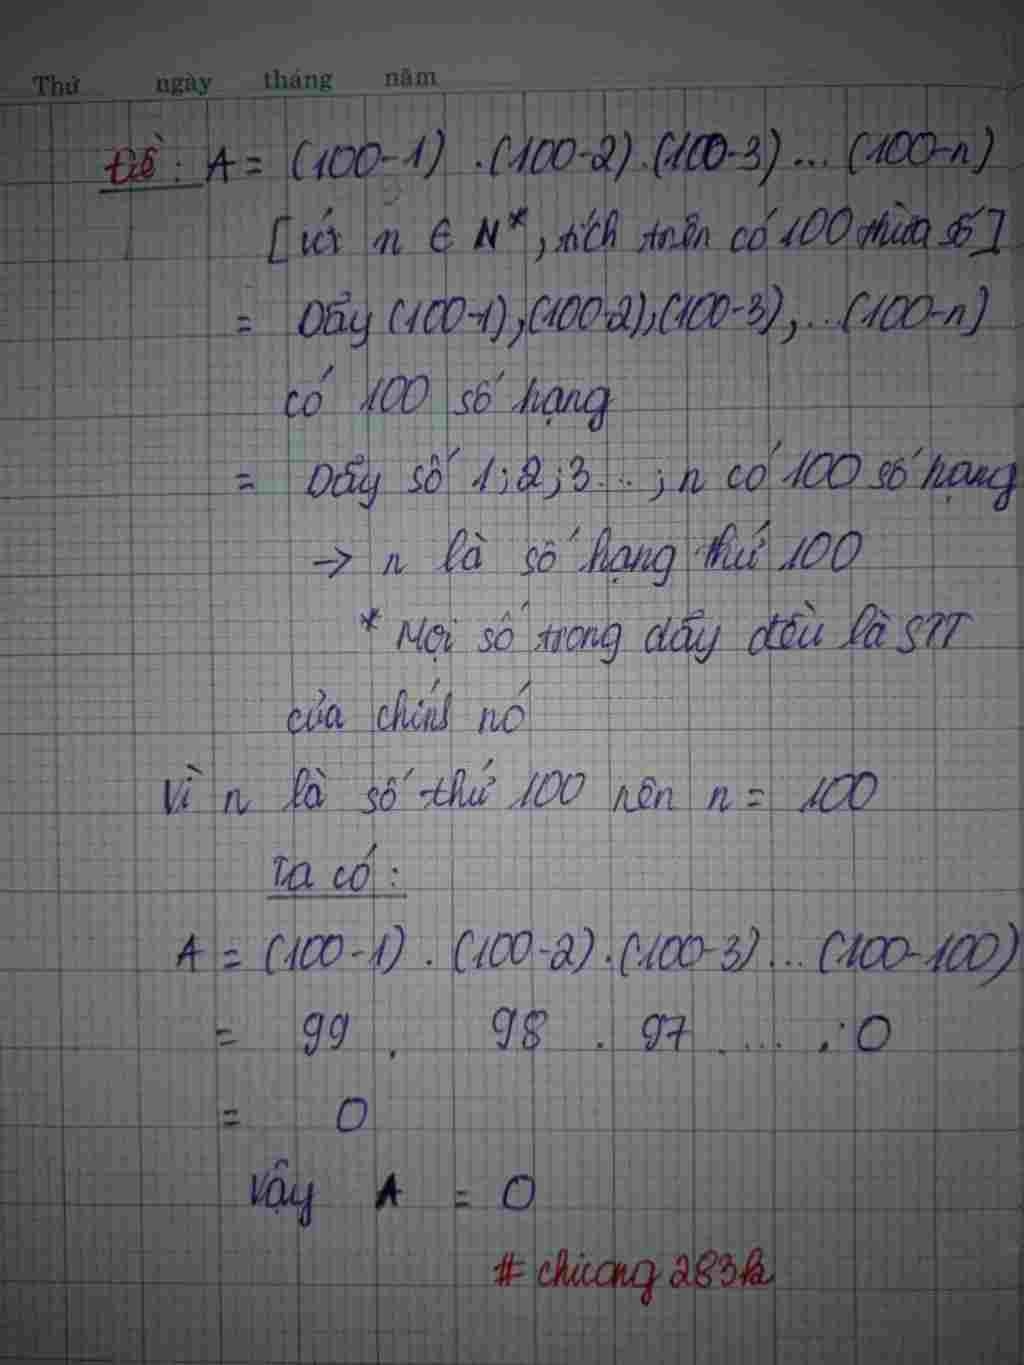 Thứ ngày tháng năm
Đề: A = (100-1) . (100-2) . (100-3) ... (100-n)
[với n ∈ N*, tích trên có 100 thừa số]
= Dãy (100-1), (100-2), (100-3), ... (100-n)
có 100 số hạng
= Dãy số 1; 2; 3 ... ; n có 100 số hạng
→ n là số hạng thứ 100
* Mọi số trong dãy đều là STT
của chính nó
Vì n là số thứ 100 nên n = 100
Ta có:
A = (100-1) . (100-2) . (100-3) ... (100-100)
= 99 . 98 . 97 . ... . 0
= 0
Vậy A = 0